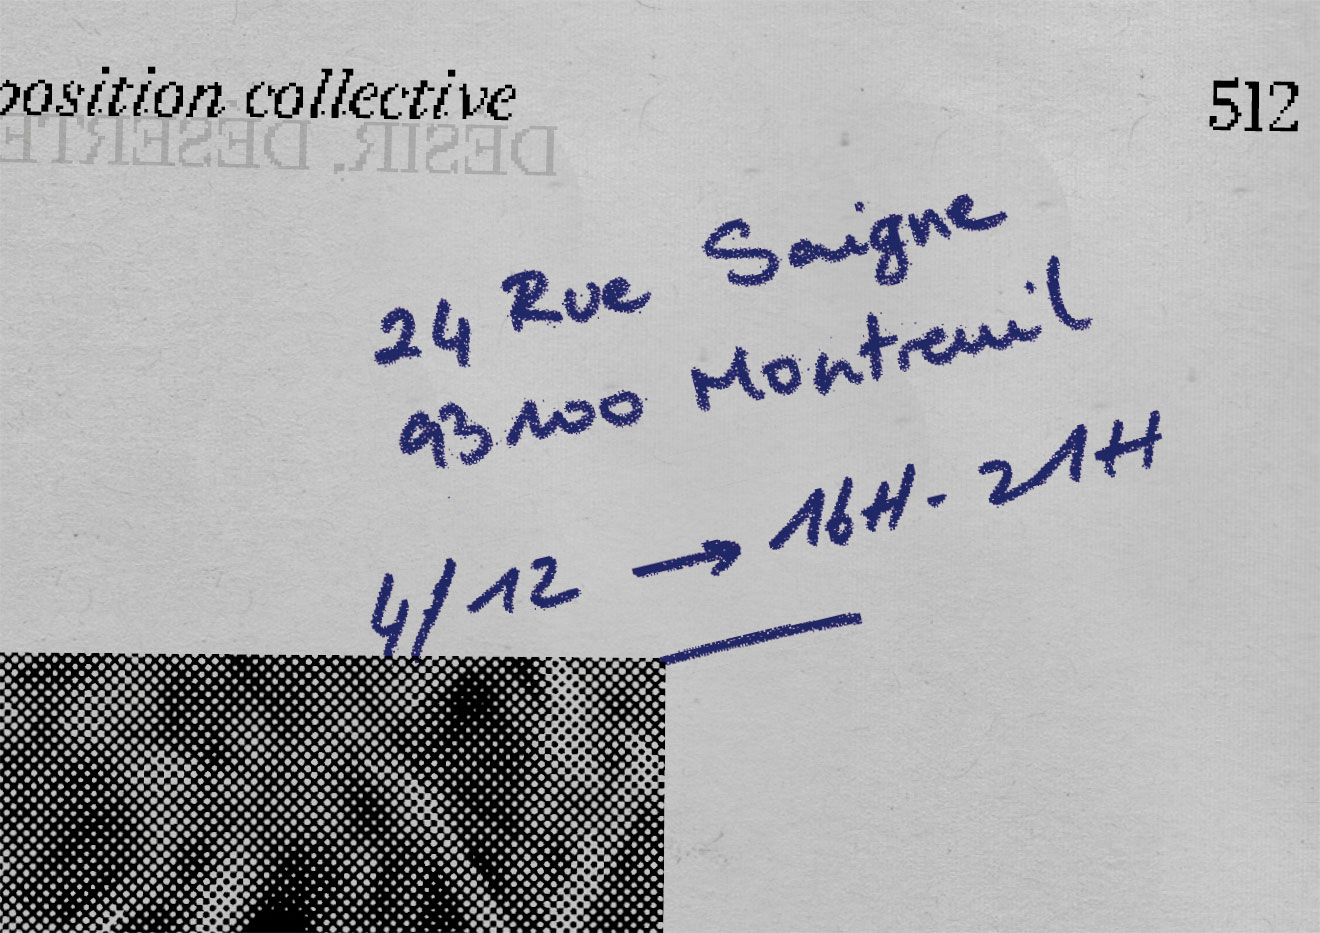 position collective
512
DESIR. DESERTE
24 Rue Saigne
93100 Montreuil
4/12 → 16H - 21H